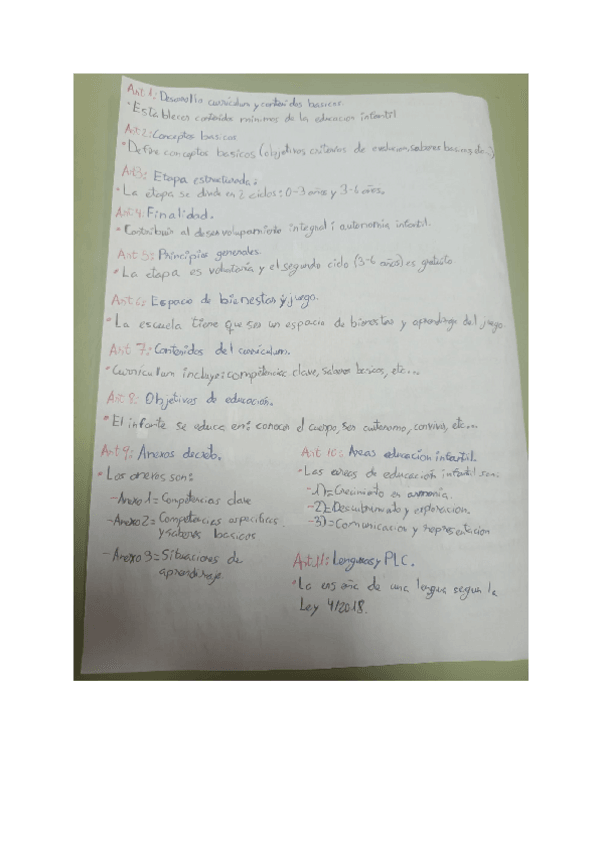 Art 1: Desarrollo curriculum y contenidos basicos.
• Establecer contenidos minimos de la educacion infantil
Art 2: Conceptos basicos
• Define conceptos basicos (objetivos, criterios de evaluacion, saberes basicos, etc...)
Art 3: Etapa estructurada:
• La etapa se divide en 2 ciclos: 0-3 años y 3-6 años.
Art 4: Finalidad.
• Contribuir al desenvolupamiento integral i autonomia infantil.
Art 5: Principios generales.
• La etapa es voluntaria y el segundo ciclo (3-6 años) es gratuito
Art 6: Espacio de bienestar y juego.
• La escuela tiene que ser un espacio de bienestar y aprendizaje del juego.
Art 7: Contenidos del curriculum.
• Curriculum incluye: competencias clave, saberes basicos, etc...
Art 8: Objetivos de educación.
• El infante se educa en: conocer el cuerpo, ser autonomo, convivir, etc...
Art 9: Anexos decreto.
• Los anexos son:
- Anexo 1 = Competencias clave
- Anexo 2 = Competencias especificas
y saberes basicos
- Anexo 3 = Situaciones de
aprendizaje
Art 10: Areas educacion infantil.
- Las areas de educación infantil son:
- 1) = Crecimiento en armonia.
- 2) = Descubrimiento y exploracion.
- 3) = Comunicacion y representacion
Art. 11: Lenguas y PLC.
• La de una lengua segun la
Ley 4/2018.